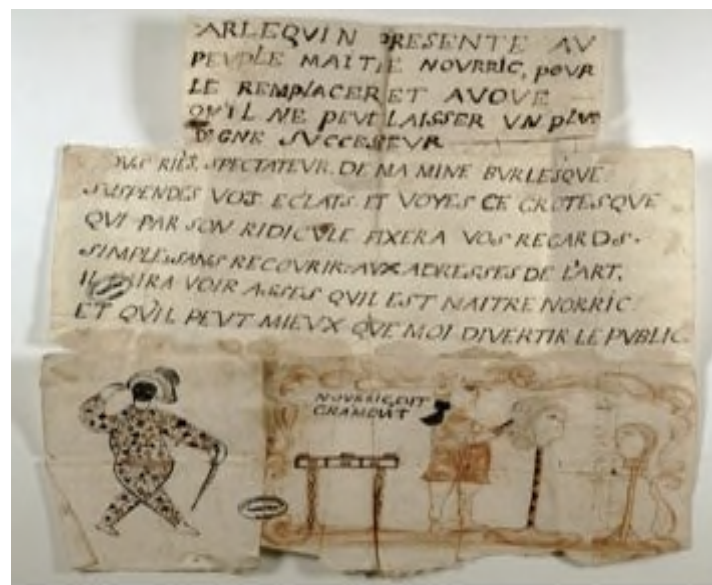 ARLEQUIN PRESENTE AV
PEUPLE MAITRE NOURRIC, POUR
LE REMPLACER ET AVOUE
QU'IL NE PEUT LAISSER UN PLUS
DIGNE SUCCESEUR
RIES, SPECTATEUR, DE MA MINE BURLESQUE
SUSPENDES VOS ECLATS ET VOYES CE GROTESQUE
QUI PAR SON RIDICULE FIXERA VOS REGARDS.
SIMPLE, SANS RECOURIR AUX ADRESSES DE L'ART,
IL VOIR ASSES QUIL EST MAITRE NORRIC
ET QU'IL PEUT MIEUX QUE MOI DIVERTIR LE PUBLIC
NOURRIC, DIT